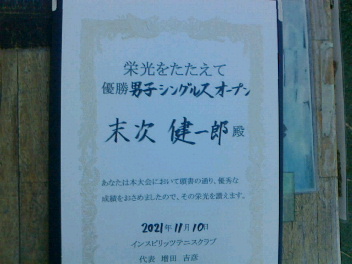 栄光をたたえて
優勝 男子シングルスオープン
末次 健一郎 殿
あなたは本大会において頭書の通り、優秀な
成績をおさめましたので、その栄光を讃えます。
2021年11月10日
インスピリッツテニスクラブ
代表 増田 吉彦